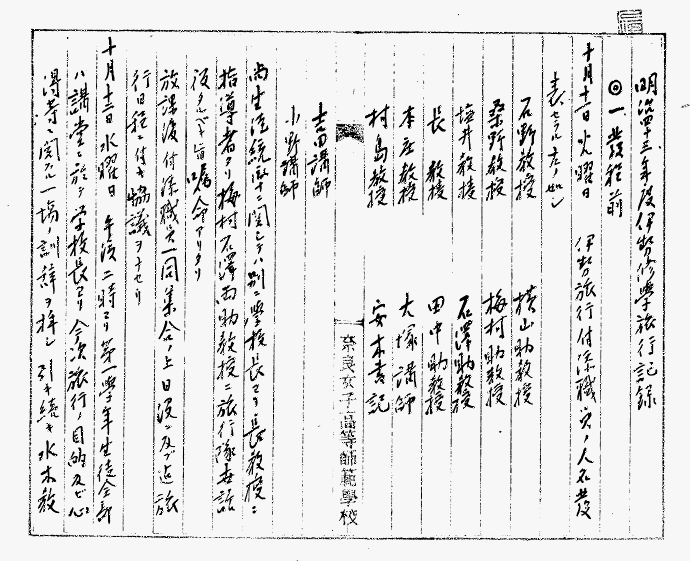 明治四十三年度伊勢修學旅行記録
◎一、發程前
十月十一日火曜日 伊勢旅行付添職員ノ人名發
表セラル左ノ如シ
石野教授 横山助教授
桑野教授 梅村助教授
塩井教授 石澤助教授
長 教授 田中助教授
本庄教授 大塚講師
村島教授 安本書記
奈良女子高等師範學校
吉田講師
小野講師
尚生徒統率ニ関シテハ別ニ學校長ヨリ長教授ニ
指導者ヨリ梅村石澤両助教授ニ旅行隊世話
役タルベキ旨嘱命アリタリ
放課後付添職員一同集合ノ上日程及ビ
行日程ニ付キ協議ヲナセリ
十月十二日水曜日 午後二時ヨリ第一學年生徒全部
ハ講堂ニ於テ學校長ヨリ今次旅行ノ目的及ビ心
得等ニ関スル一場ノ訓辞ヲ拝シ引キ続キ水木教